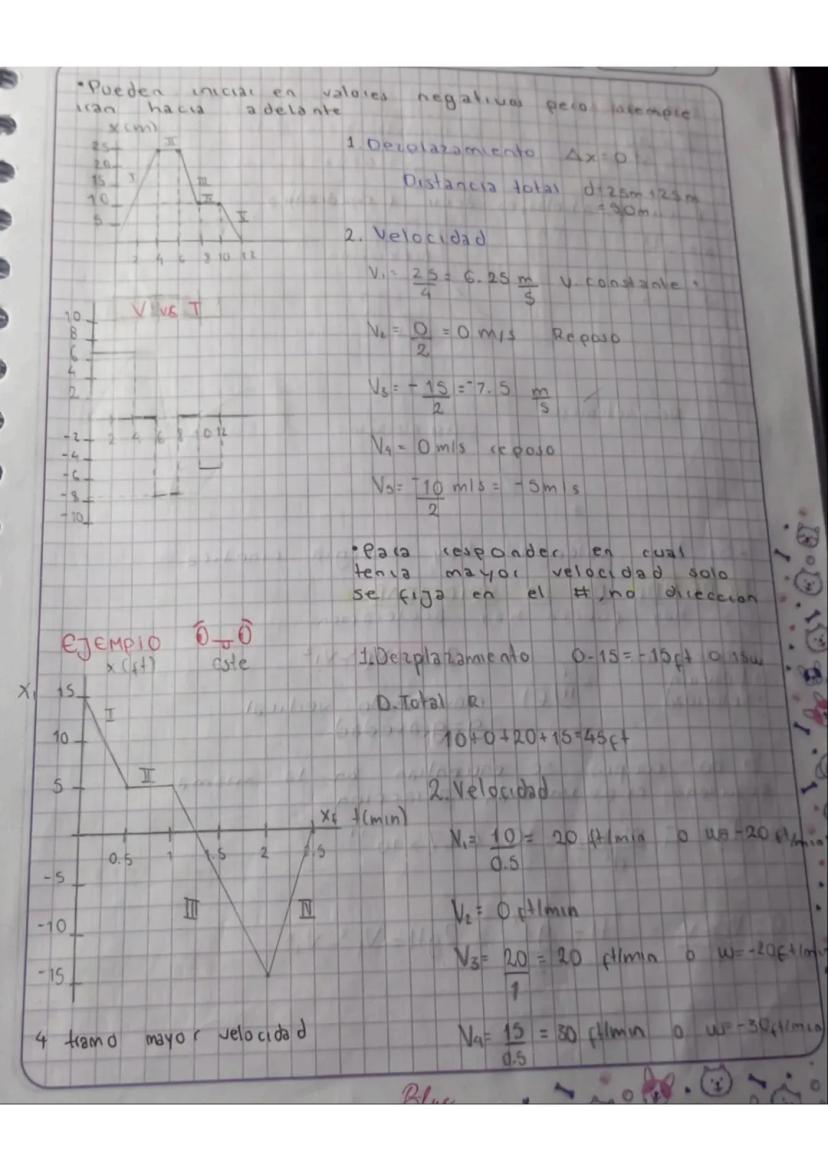 •Pueden iniciar en valores negativos pero siempre
iran hacia adelante
x(m)
25
20
15
10
5
I
II
III
IV
V
2 4 6 8 10 12
1. Desplazamiento Δx=0
Distancia total d=25m+25m
=50m
2. Velocidad
V₁= 25/4 = 6.25 m/s V. constante
V₂= 0/2 = 0 m/s Reposo
V₃= -15/2 = -7.5 m/s
V₄= 0 m/s reposo
V₅= -10/2 m/s = -5m/s
V vs T
10
8
6
4
2
-2
-4
-6
-8
-10
2 4 6 8 10 12
•Para responder en cual
tenia mayor velocidad solo
se fija en el #, no direccion
EJEMPlO
x(ft) este
X₁ 15
10
5
-5
-10
-15
I
II
III
IV
Xf t(min)
0.5 1 1.5 2 2.5
4 tramo mayor velocidad
1. Dezplazamiento 0-15=-15ft o 15w
D. Total R.
10+0+20+15=45ft
2. Velocidad
V₁= 10/0.5 = 20 ft/min o w= -20 ft/min
V₂= 0 ft/min
V₃= 20/1 = 20 ft/min o w= -20ft/min
V₄= 15/0.5 = 30 ft/min o w= -30ft/min